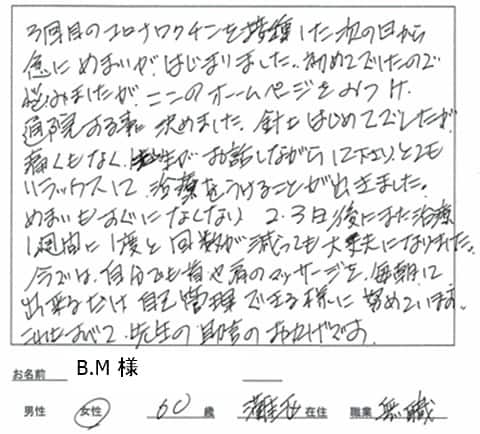 3回目のコロナワクチンを接種した次の日から
急にめまいがはじまりました。初めてでしたので
悩みましたが、ここのホームページをみつけ
通院する事決めました。針もはじめてでしたが
痛くもなく、先生がお話しながらして下さり、とても
リラックスして治療をうけることが出きました。
めまいもすぐになくなり 2.3日後にまた治療
1週間に1度と回数が減っても大丈夫になりました。
今では、自分でも首や肩のマッサージを毎朝して
出来るだけ自己管理できる様に努めています。
これもすべて、先生の助言のおかげです。
お名前 B.M 様
男性 女性 60 歳 在住 職業 無職